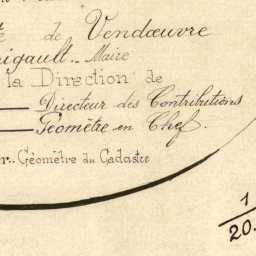 de Vendœuvre
Maire
la Direction de
Directeur des Contributions
Géomètre en Chef.
Géomètre du Cadastre
1
20.